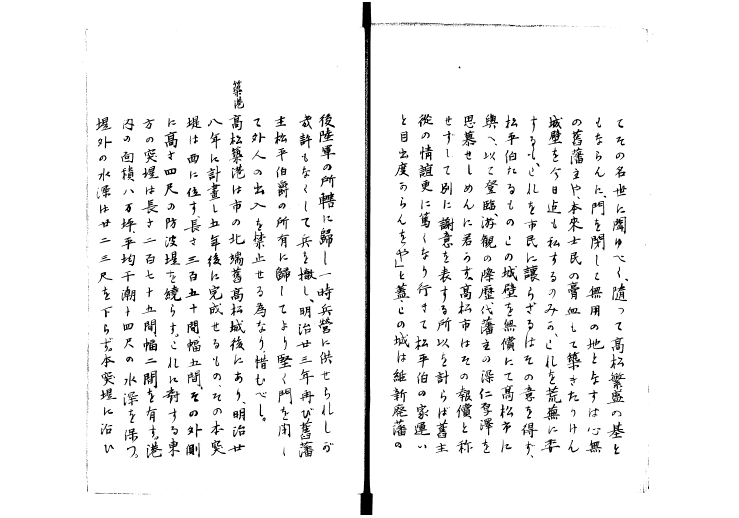 てその名世に聞ゆべく、随って高松繁盛の基と
もならんに、門を閉して無用の地となすは心無
の舊藩主や、本來士民の膏血もて築きたりけん
城壁を今日迄も私するのみか、これを荒蕪に委
するも、これを市民に讓らざるはその意を得ず、
松平伯たるものこの城壁を無償にて高松市に
與へ、以て登臨游觀の際歴代藩主の深仁厚澤を
思慕せしめんに若かず、高松市はその報償と稱
せずして別に謝意を表する所以を計らば舊主
從の情誼更に篤くなり行きて松平伯の家運い
と目出度からんをや」と蓋しこの城は維新廢藩の
後陸軍の所轄に歸し一時兵營に供せられしが
幾許もなくして兵を撤し、明治廿三年再び舊藩
主松平伯爵の所有に歸してより堅く門を閉し
て外人の出入を禁止せる為なり、惜むべし。
築港 高松築港は市の北端舊高松城後にあり、明治廿
八年に計畫し五年後に完成せるもの、その本突
堤は西に位す長さ三百五十間、幅五間、その外側
に高さ四尺の防波堤を繞らす。これに對する東
方の突堤は長さ二百七十五間、幅二間を有す。港
内の面積八万坪、平均干潮十四尺の水深を保つ。
堤外の水深は廿二三尺を下らず。本突堤に沿ひ